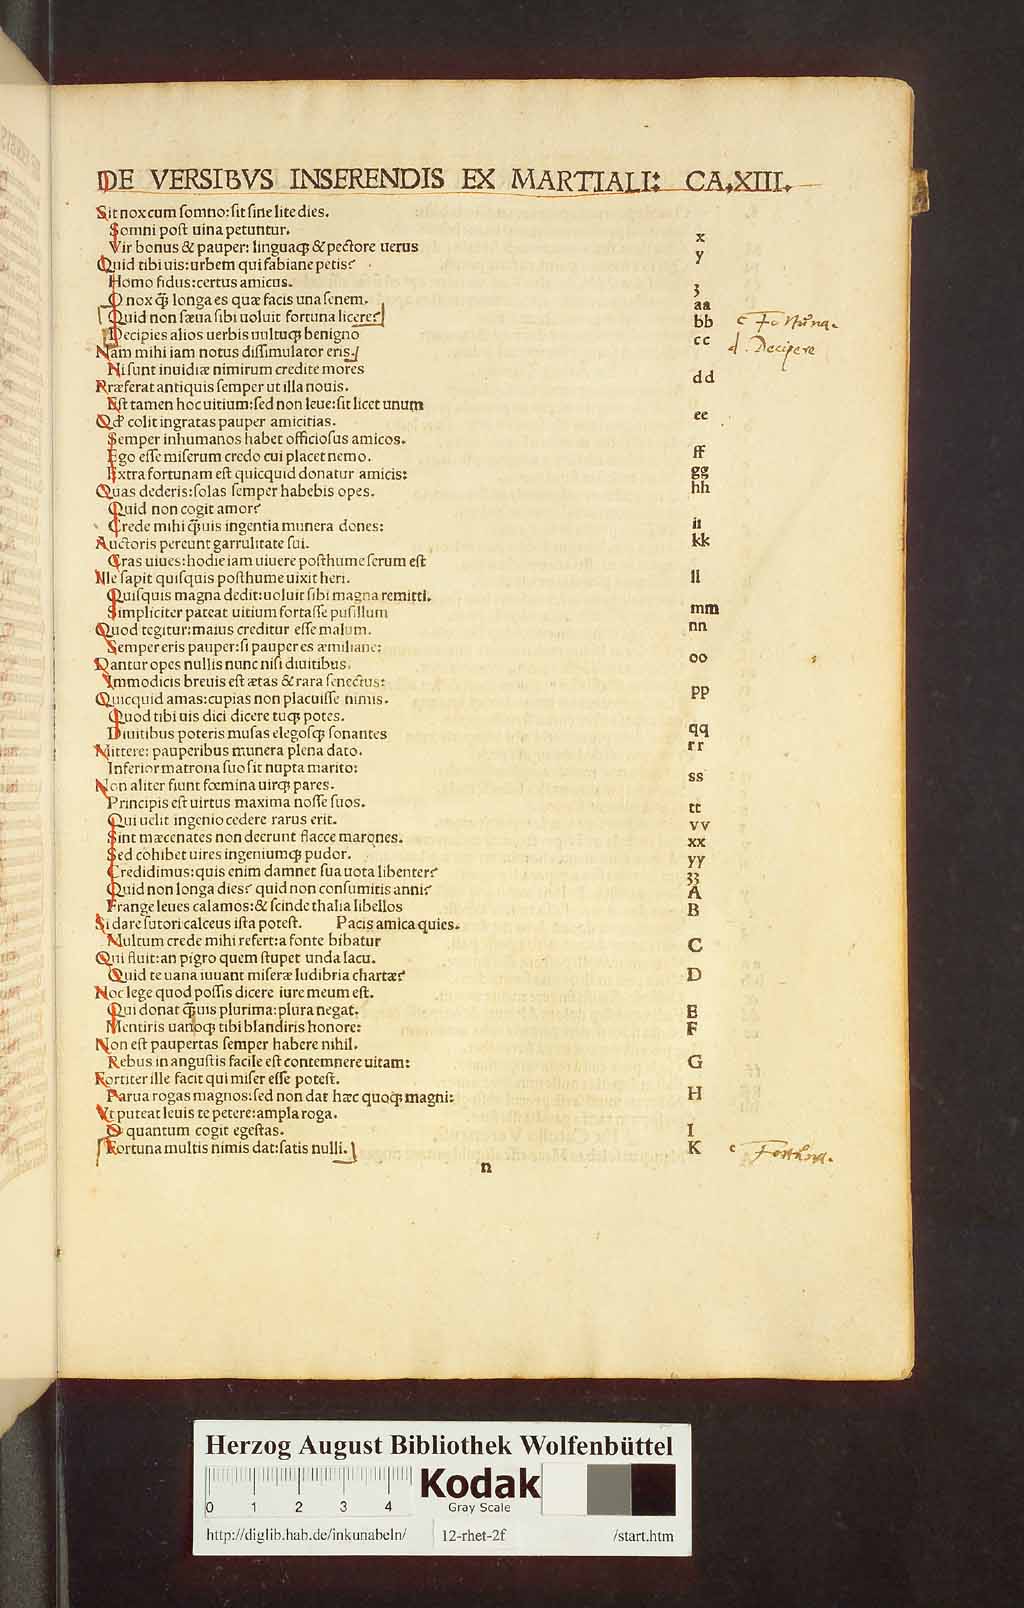 DE VERSIBVS INSERENDIS EX MARTIALI: CA,XIII.
Sit nox cum somno: sit sine lite dies.
Somni post uina petuntur. x
Vir bonus & pauper: linguaq; & pectore uerus y
Quid tibi uis: urbem qui fabiane petis?
Homo fidus: certus amicus. ʒ
O nox q̃ longa es quæ facis una senem. aa
Quid non sæua sibi uoluit fortuna licere? bb c Fortuna.
Decipies alios uerbis uultuq; benigno cc d. Decipere
Nam mihi iam notus dissimulator eris.
Ni sunt inuidiæ nimirum credite mores dd
Præferat antiquis semper ut illa nouis.
Est tamen hoc uitium: sed non leue: sit licet unum ee
Qđ colit ingratas pauper amicitias.
Semper inhumanos habet officiosus amicos. ff
Ego esse miserum credo cui placet nemo. gg
Extra fortunam est quicquid donatur amicis: hh
Quas dederis: solas semper habebis opes.
Quid non cogit amor? ii
Crede mihi q̃uis ingentia munera dones: kk
Auctoris pereunt garrulitate sui.
Cras uiues: hodie iam uiuere posthume serum est ll
Ille sapit quisquis posthume uixit heri.
Quisquis magna dedit: uoluit sibi magna remitti. mm
Simpliciter pateat uitium fortasse pusillum nn
Quod tegitur: maius creditur esse malum.
Semper eris pauper: si pauper es æmiliane: oo
Dantur opes nullis nunc nisi diuitibus.
Immodicis breuis est ætas & rara senectus: pp
Quicquid amas: cupias non placuisse nimis.
Quod tibi uis dici dicere tuq; potes. qq
Diuitibus poteris musas elegosq; sonantes rr
Mittere: pauperibus munera plena dato.
Inferior matrona suo sit nupta marito: ss
Non aliter fiunt fœmina uirq; pares.
Principis est uirtus maxima nosse suos. tt
Qui uelit ingenio cedere rarus erit. vv
Sint mæcenates non deerunt flacce marones. xx
Sed cohibet uires ingeniumq; pudor. yy
Credidimus: quis enim damnet sua uota libenter? ʒʒ
Quid non longa dies? quid non consumitis anni? A
Frange leues calamos: & scinde thalia libellos B
Si dare sutori calceus ista potest. Pacis amica quies.
Multum crede mihi refert: a fonte bibatur C
Qui fluit: an pigro quem stupet unda lacu.
Quid te uana iuuant miseræ ludibria chartæ? D
Hoc lege quod possis dicere iure meum est.
Qui donat q̃uis plurima: plura negat. E
Mentiris uanoq; tibi blandiris honore: F
Non est paupertas semper habere nihil.
Rebus in angustis facile est contemnere uitam: G
Fortiter ille facit qui miser esse potest.
Parua rogas magnos: sed non dat hæc quoq; magni: H
Vt puteat leuis te petere: ampla roga.
O quantum cogit egestas. I
Fortuna multis nimis dat: satis nulli. K c Fortuna.
n
Herzog August Bibliothek Wolfenbüttel
0 1 2 3 4 Kodak
Gray Scale
http://diglib.hab.de/inkunabeln/ 12-rhet-2f /start.htm